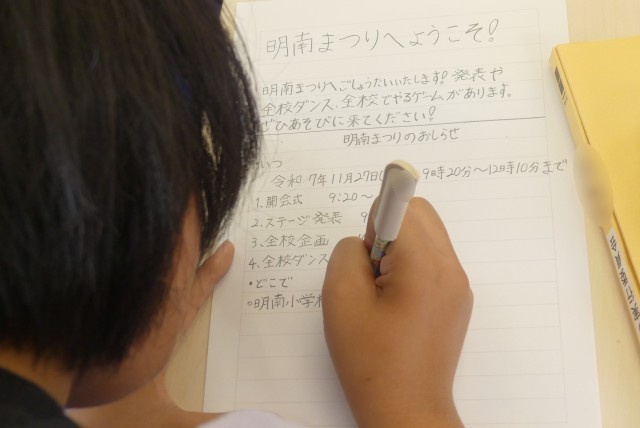 明南まつりへようこそ!
明南まつりへごしょうたいいたします!発表や
全校ダンス、全校でやるゲームがあります。
ぜひあそびに来てください!
明南まつりのおしらせ
いつ
令和7年11月27日 9時20分～12時10分まで
1.開会式 9:20～
2.ステージ発表 9
3.全校企画
4.全校ダンス
・どこで
○明南小学校